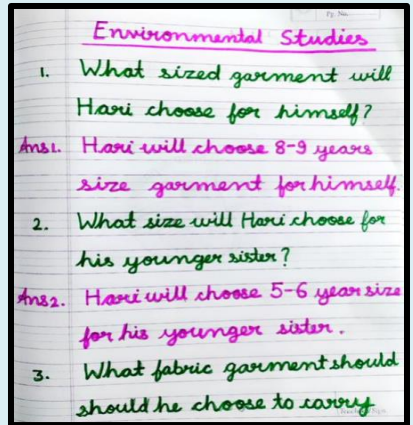 Environmental Studies
1. What sized garment will
Hari choose for himself?
Ans1. Hari will choose 8-9 years
size garment for himself.
2. What size will Hari choose for
his younger sister?
Ans2. Hari will choose 5-6 year size
for his younger sister.
3. What fabric garment should
should he choose to carry